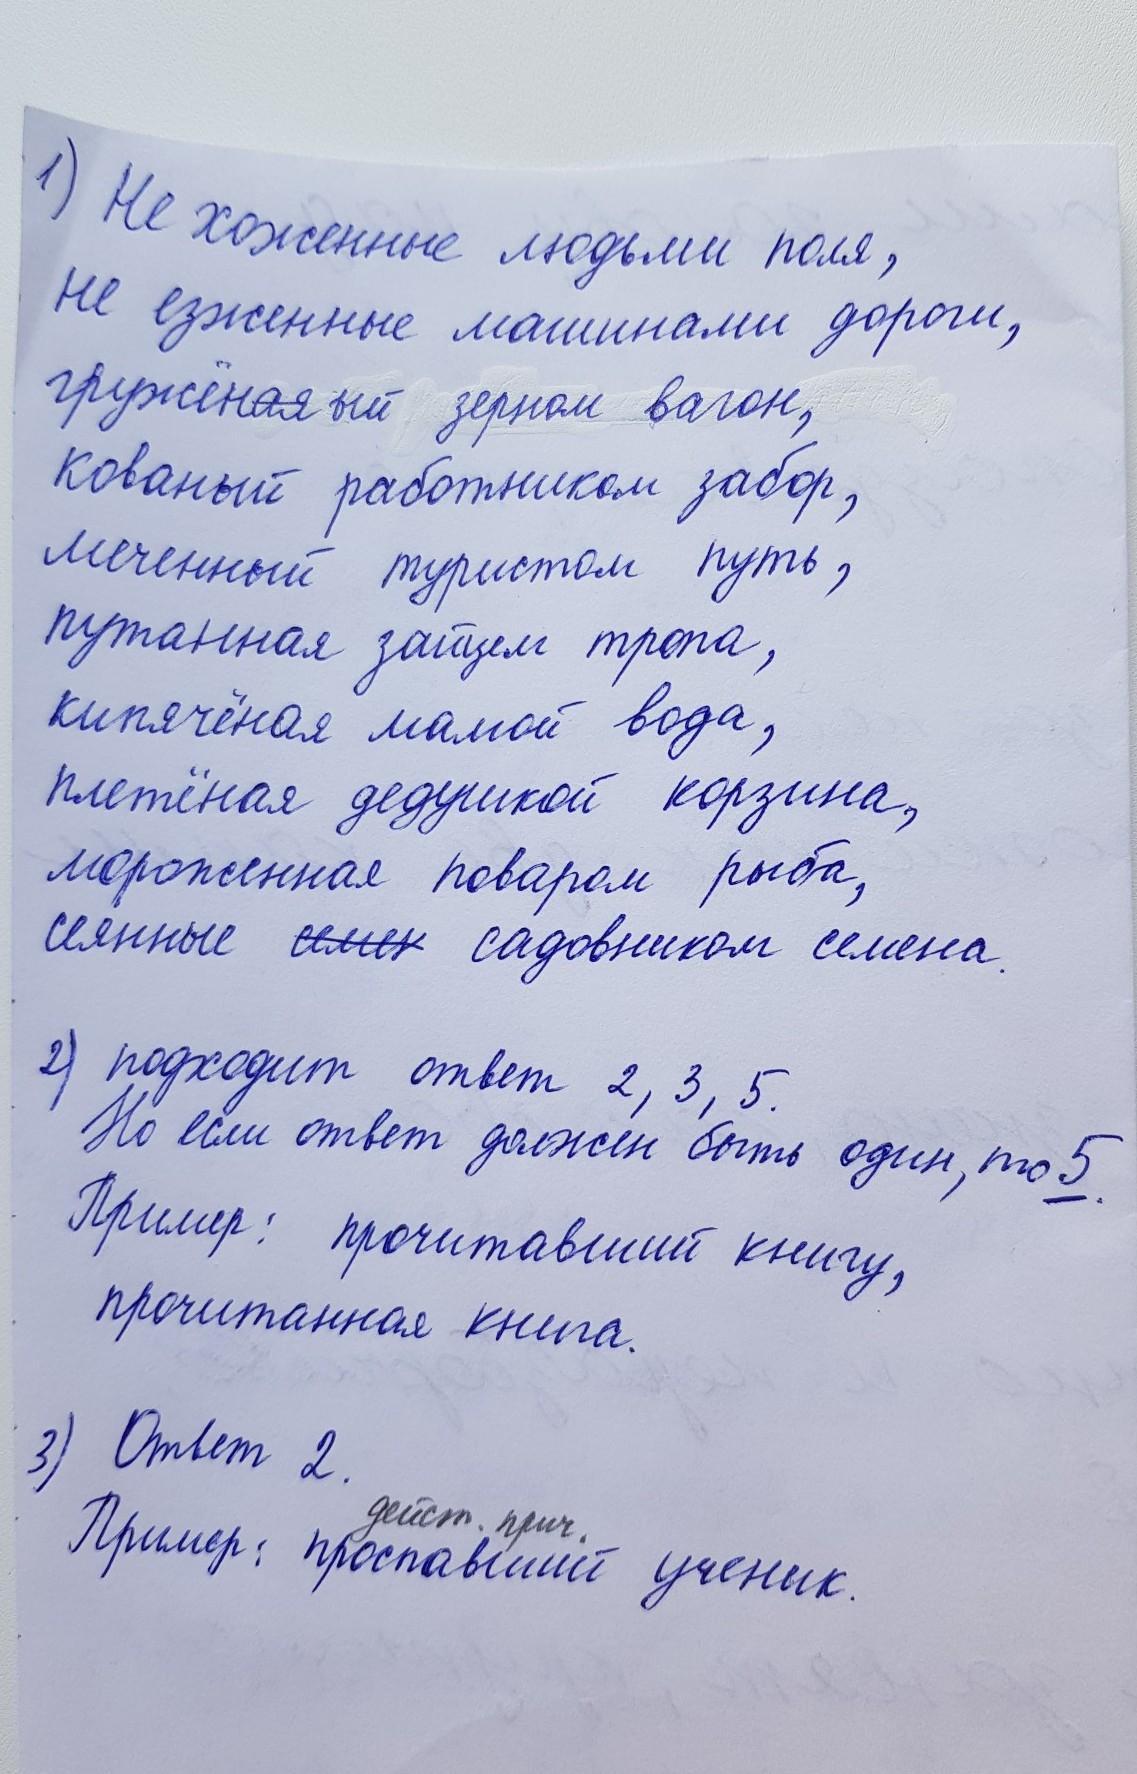 1) Не хоженные людьми поля,
не езженные машинами дороги,
гружёнаяый зерном вагон,
кованый работником забор,
меченный туристом путь,
путанная зайцем тропа,
кипячёная мамой вода,
плетёная дедушкой корзина,
мороженная поваром рыба,
сеянные семен садовником семена.
2) подходит ответ 2, 3, 5.
Но если ответ должен быть один, то 5.
Пример: прочитавший книгу,
прочитанная книга.
3) Ответ 2.
дейст. прич.
Пример: проспавший ученик.